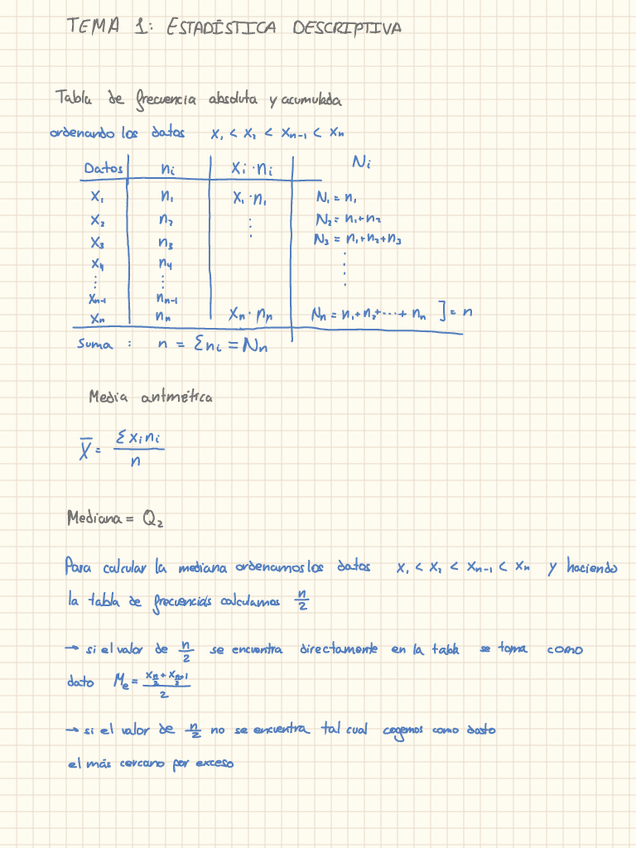 TEMA 1: ESTADÍSTICA DESCRIPTIVA
Tabla de frecuencia absoluta y acumulada
ordenando los datos x₁ < x₂ < xₙ₋₁ < xₙ
Datos nᵢ xᵢ·nᵢ Nᵢ
x₁ n₁ x₁·n₁ N₁ = n₁
x₂ n₂ ⋮ N₂ = n₁+n₂
x₃ n₃ N₃ = n₁+n₂+n₃
x₄ n₄ ⋮
⋮ ⋮
xₙ₋₁ nₙ₋₁
xₙ nₙ xₙ·nₙ Nₙ = n₁+n₂+···+nₙ ] = n
Suma : n = Σnᵢ = Nₙ
Media aritmética
X̄ = Σxᵢnᵢ / n
Mediana = Q₂
Para calcular la mediana ordenamos los datos x₁ < x₂ < xₙ₋₁ < xₙ y haciendo
la tabla de frecuencias calculamos n/2
→ si el valor de n/2 se encuentra directamente en la tabla se toma como
dato Mₑ = (x_{n/2} + x_{n/2+1}) / 2
→ si el valor de n/2 no se encuentra tal cual cogemos como dato
el más cercano por exceso